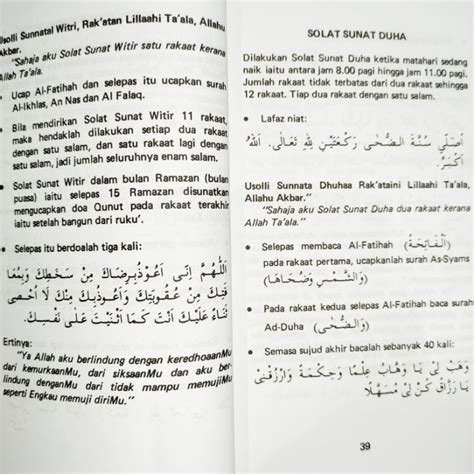 Usolli Sunnatal Witri, Rak'atan Lillaahi Ta'ala, Allahu
Akbar.
"Sahaja aku Solat Sunat Witir satu rakaat kerana
Allah Ta'ala.
• Ucap Al-Fatihah dan selepas itu ucapkan surah
Al-Ikhlas, An Nas dan Al Falaq.
• Bila mendirikan Solat Sunat Witir 11 rakaat,
maka hendaklah dilakukan setiap dua rakaat,
dengan satu salam, dan satu rakaat lagi dengan
satu salam, jadi jumlah seluruhnya enam salam.
• Solat Sunat Witir dalam bulan Ramazan (bulan
puasa) iaitu selepas 15 Ramazan disunatkan
mengucapkan doa Qunut pada rakaat terakhir
iaitu setelah bangun dari ruku'.
• Selepas itu berdoalah tiga kali:
اَللّٰهُمَّ اِنِّى اَعُوْذُ بِرِضَاكَ مِنْ سَخَطِكَ وَبِمُعَا
فَتِكَ مِنْ عُقُوْبَتِكَ وَاَعُوْذُ بِكَ مِنْكَ لَا اُحْصِى
ثَنَاءً عَلَيْكَ اَنْتَ كَمَا اَثْنَيْتَ عَلَى نَفْسِكَ.
Ertinya:
"Ya Allah aku berlindung dengan keredhoaanMu
dari kemurkaanMu, dari siksaanMu dan aku ber-
lindung denganMu dari tidak mampu memujiMu
seperti Engkau memuji diriMu."
SOLAT SUNAT DUHA
Dilakukan Solat Sunat Duha ketika matahari sedang
naik iaitu antara jam 8.00 pagi hingga jam 11.00 pagi.
Jumlah rakaat tidak terbatas dari dua rakaat sehingga
12 rakaat. Tiap dua rakaat dengan satu salam.
• Lafaz niat:
اُصَلِّى سُنَّةَ الضُّحٰى رَكْعَتَيْنِ لِلّٰهِ تَعَالٰى. اَللّٰهُ
Usolli Sunnata Dhuhaa Rak'ataini Lillaahi Ta'ala,
Allahu Akbar."
"Sahaja aku Solat Sunat Duha dua rakaat kerana
Allah Ta'ala."
• Selepas membaca Al-Fatihah (اَلْفَاتِحَةُ)
pada rakaat pertama, ucapkanlah surah As-Syams
(وَالشَّمْسِ وَضُحَاهَا)
• Pada rakaat kedua selepas Al-Fatihah baca surah
Ad-Duha (وَالضُّحٰى)
• Semasa sujud akhir bacalah sebanyak 40 kali:
وَهَبْ لِىْ يَا وَهَّابُ عِلْمًا وَحِكْمَةً وَارْزُقْنِى
يَا رَزَّاقُ كُنْ لِىْ مُسَهِّلًا
39